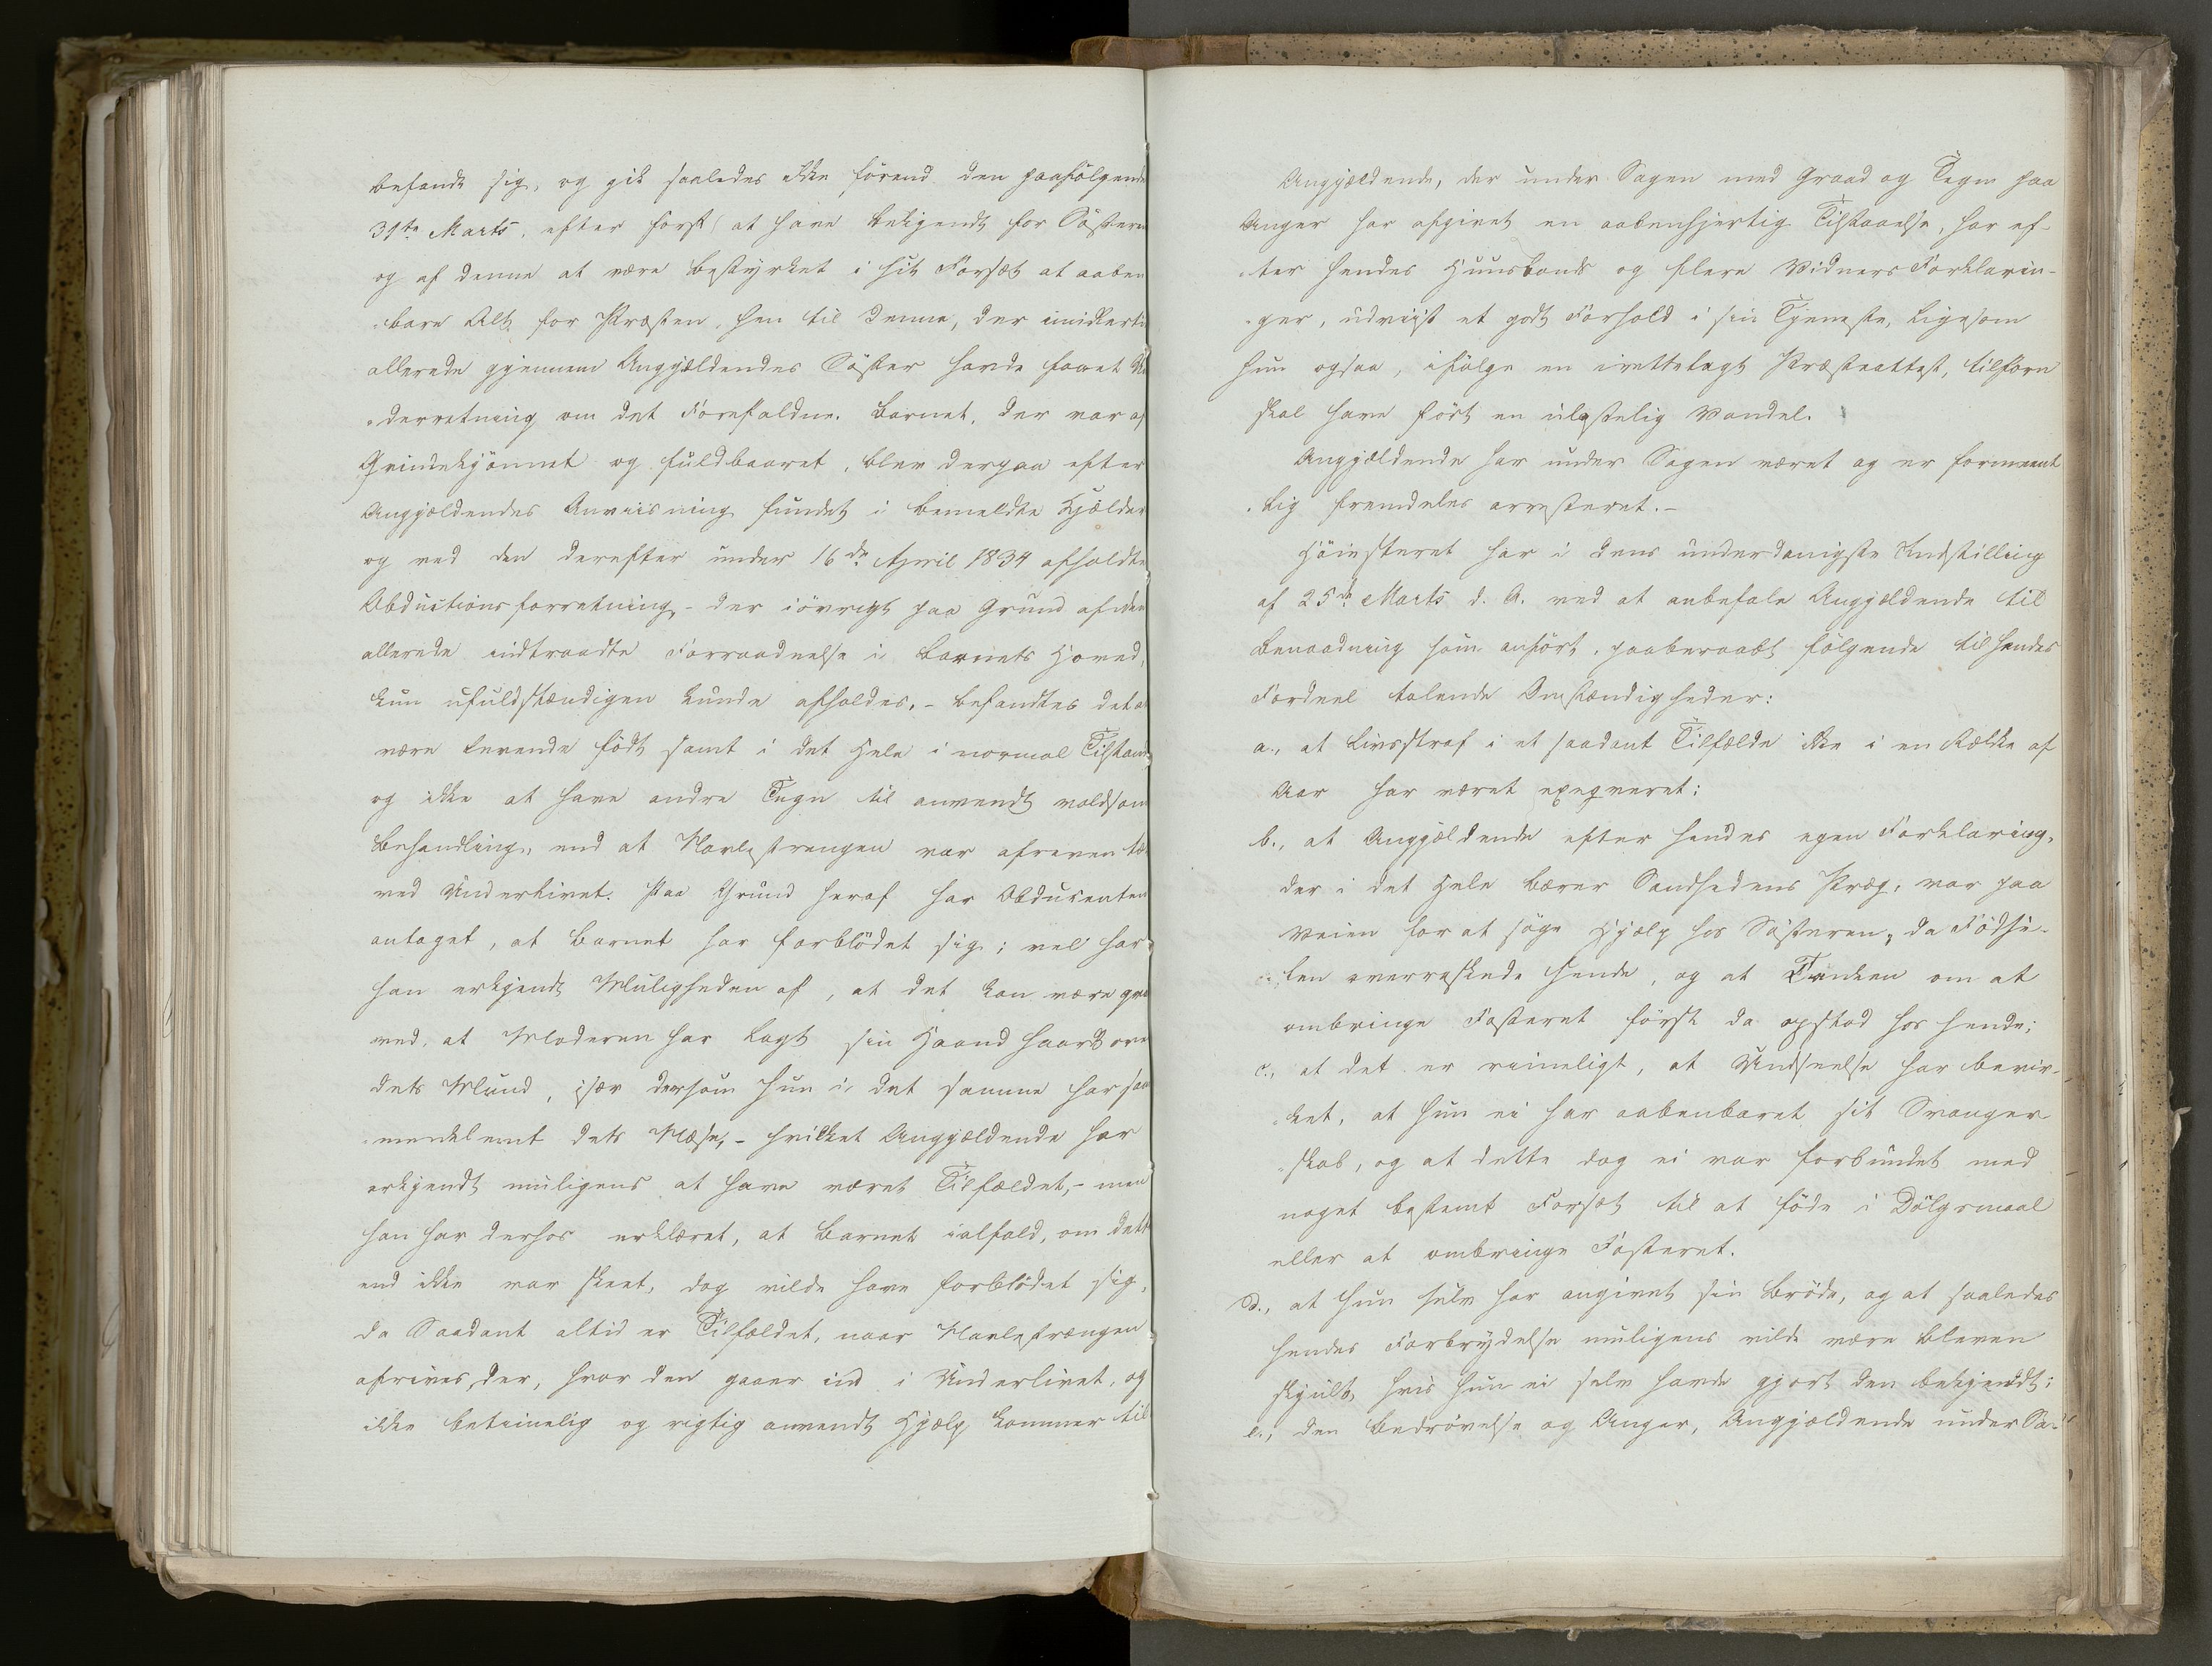 befandt sig, og gik saaledes ikke förend den paafölgende
31te Marts, efter först at have bekjendt for Söstere
og af denne at være bestyrket i sit Forsæt at aaben
bare Alt for Præsten, hen til denne, der imidlerti
allerede gjennem Angjældendes Söster havde faaet Un
derretning om det Forefaldne. Barnet, der var af
Qvindekjönnet og fuldbaaret, blev derpaa efter
Angjældendes Anviisning fundet i bemeldte Kjelder
og ved den derefter under 16de April 1834 afholdte
Obductionsforretning, - der iövrigt paa Grund af den
allerede indtraadte Forraadnelse i Barnets Hoved,
kun ufuldstændigen kunde afholdes, - befandtes det at
være levende födt samt i det Hele i normal Tilstand
og ikke at have andre Tegn til anvendt voldsom
Behandling, end at Navlestrengen var afreven tæt
ved Underlivet. Paa Grund heraf har Obducenten
antaget, at Barnet har forblödet sig; vel har
han erkjendt Muligheden af, at det kan være qva
ved, at Moderen har lagt sin Haand haardt over
dets Mund, især dersom hun i det samme har saa
menklemt dets Næse, - hvilket Angjældende har
erkjendt muligens at have været Tilfældet, - men
han har derhos erklæret, at Barnet ialfald, om dett
end ikke var skeet, dog vilde have forblödet sig,
da Saadant altid er Tilfældet, naar Navlestrængen
afrives der, hvor den gaaer ind i Underlivet, og
ikke betimelig og rigtig anvendt Hjælp kommer til
Angjældende, der under Sagen med Graad og Tegn paa
Anger har afgivet en aabenhjertig Tilstaaelse, har ef-
ter hendes Huusbonds og flere Vidners Forklarin-
ger, udviist et godt Forhold i sin Tjeneste, ligesom
hun ogsaa, ifölge en irettelagt Præsteattest, tilforn
skal have fört en ulastelig Vandel.
Angjældende har under Sagen været og er formeent
lig fremdeles arresteret. -
Höiesteret har i dens underdanigste Indstilling
af 25de Marts d. A. ved at anbefale Angjældende til
Benaadning som anfört, paaberaabt fölgende til hendes
Fordeel talende Omstændigheder:
a., at Livsstraf i et saadant Tilfælde ikke i en Række af
Aar har været exeqveret;
b., at Angjældende efter hendes egen Forklaring,
der i det Hele bærer Sandhedens Præg, var paa
Veien for at söge Hjælp hos Sösteren, da Födse-
len overraskede hende, og at Tanken om at
ombringe Fosteret först da opstod hos hende;
c., at det er rimeligt, at Undseelse har bevir-
ket, at hun ei har aabenbaret sit Svanger
skab, og at dette dog ei var forbundet med
noget bestemt Forsæt til at föde i Dölgsmaal
eller at ombringe Fosteret.
d., at hun selv har angivet sin Bröde, og at saaledes
hendes Forbrydelse muligens vilde være bleven
skjult, hvis hun ei selv havde gjort den bekjendt;
e., den Bedrövelse og Anger, Angjældende under Sa-